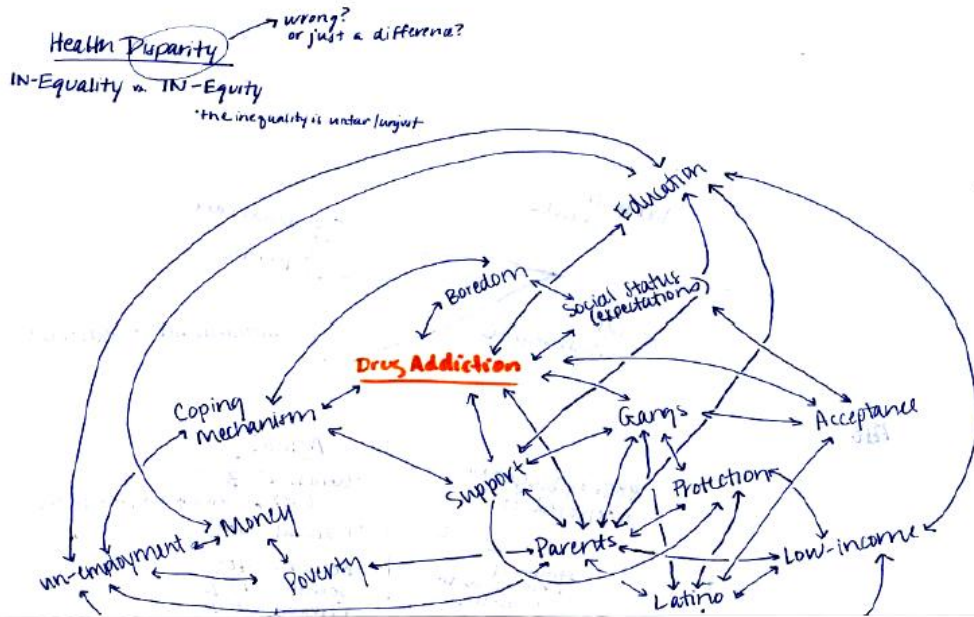 wrong?
or just a difference?
Health Disparity
IN-Equality vs. IN-Equity
*the inequality is unfair/unjust
Education
Boredom
Social Status
(expectations)
Drug Addiction
Coping
Mechanism
Gangs
Acceptance
Support
Protection
Money
un-employment
Parents
Low-income
Poverty
Latino